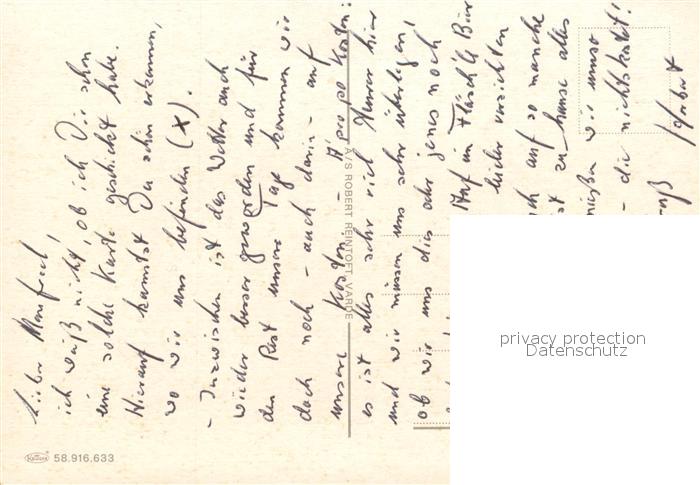 Lieber Manfred
ich weiß nicht, ob ich Dir schon
eine solche Karte geschickt habe.
Hierauf kannst Du schön erkennen,
wo wir uns befinden (X).
- Inzwischen ist das Wetter auch
wieder besser geworden und für
den Rest unserer Tage kommen wir
doch noch - auch darin - auf
unsere Kosten. - A propo Kosten:
es ist alles sehr viel teurer hier
und wir müssen uns sehr überlegen,
ob wir uns dies oder jenes noch
Auf ein Fläsch'le Bier
leider verzichten
auf so manche
zu hause alles
wir umso
- die nichts kostet!
Gruß
Herbert
A/S ROBERT REINTOFT. VARDE
58.916.633
privacy protection
Datenschutz